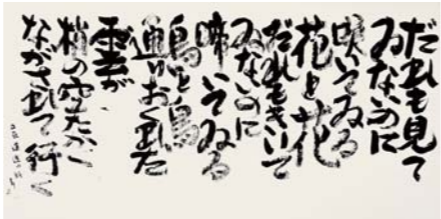 だれも見て
ゐないのに
咲いてゐる
花と花
だれもきいて
ゐないのに
啼いてゐる
鳥と鳥
通りおくれた
雲が
梢の空たかく
ながされて行く